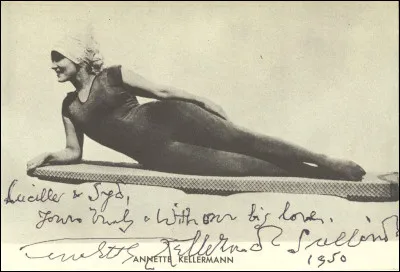 Lucille & Syd,
Yours truly & With our big love,
Annette Kellermann Sullivan
1950
ANNETTE KELLERMANN